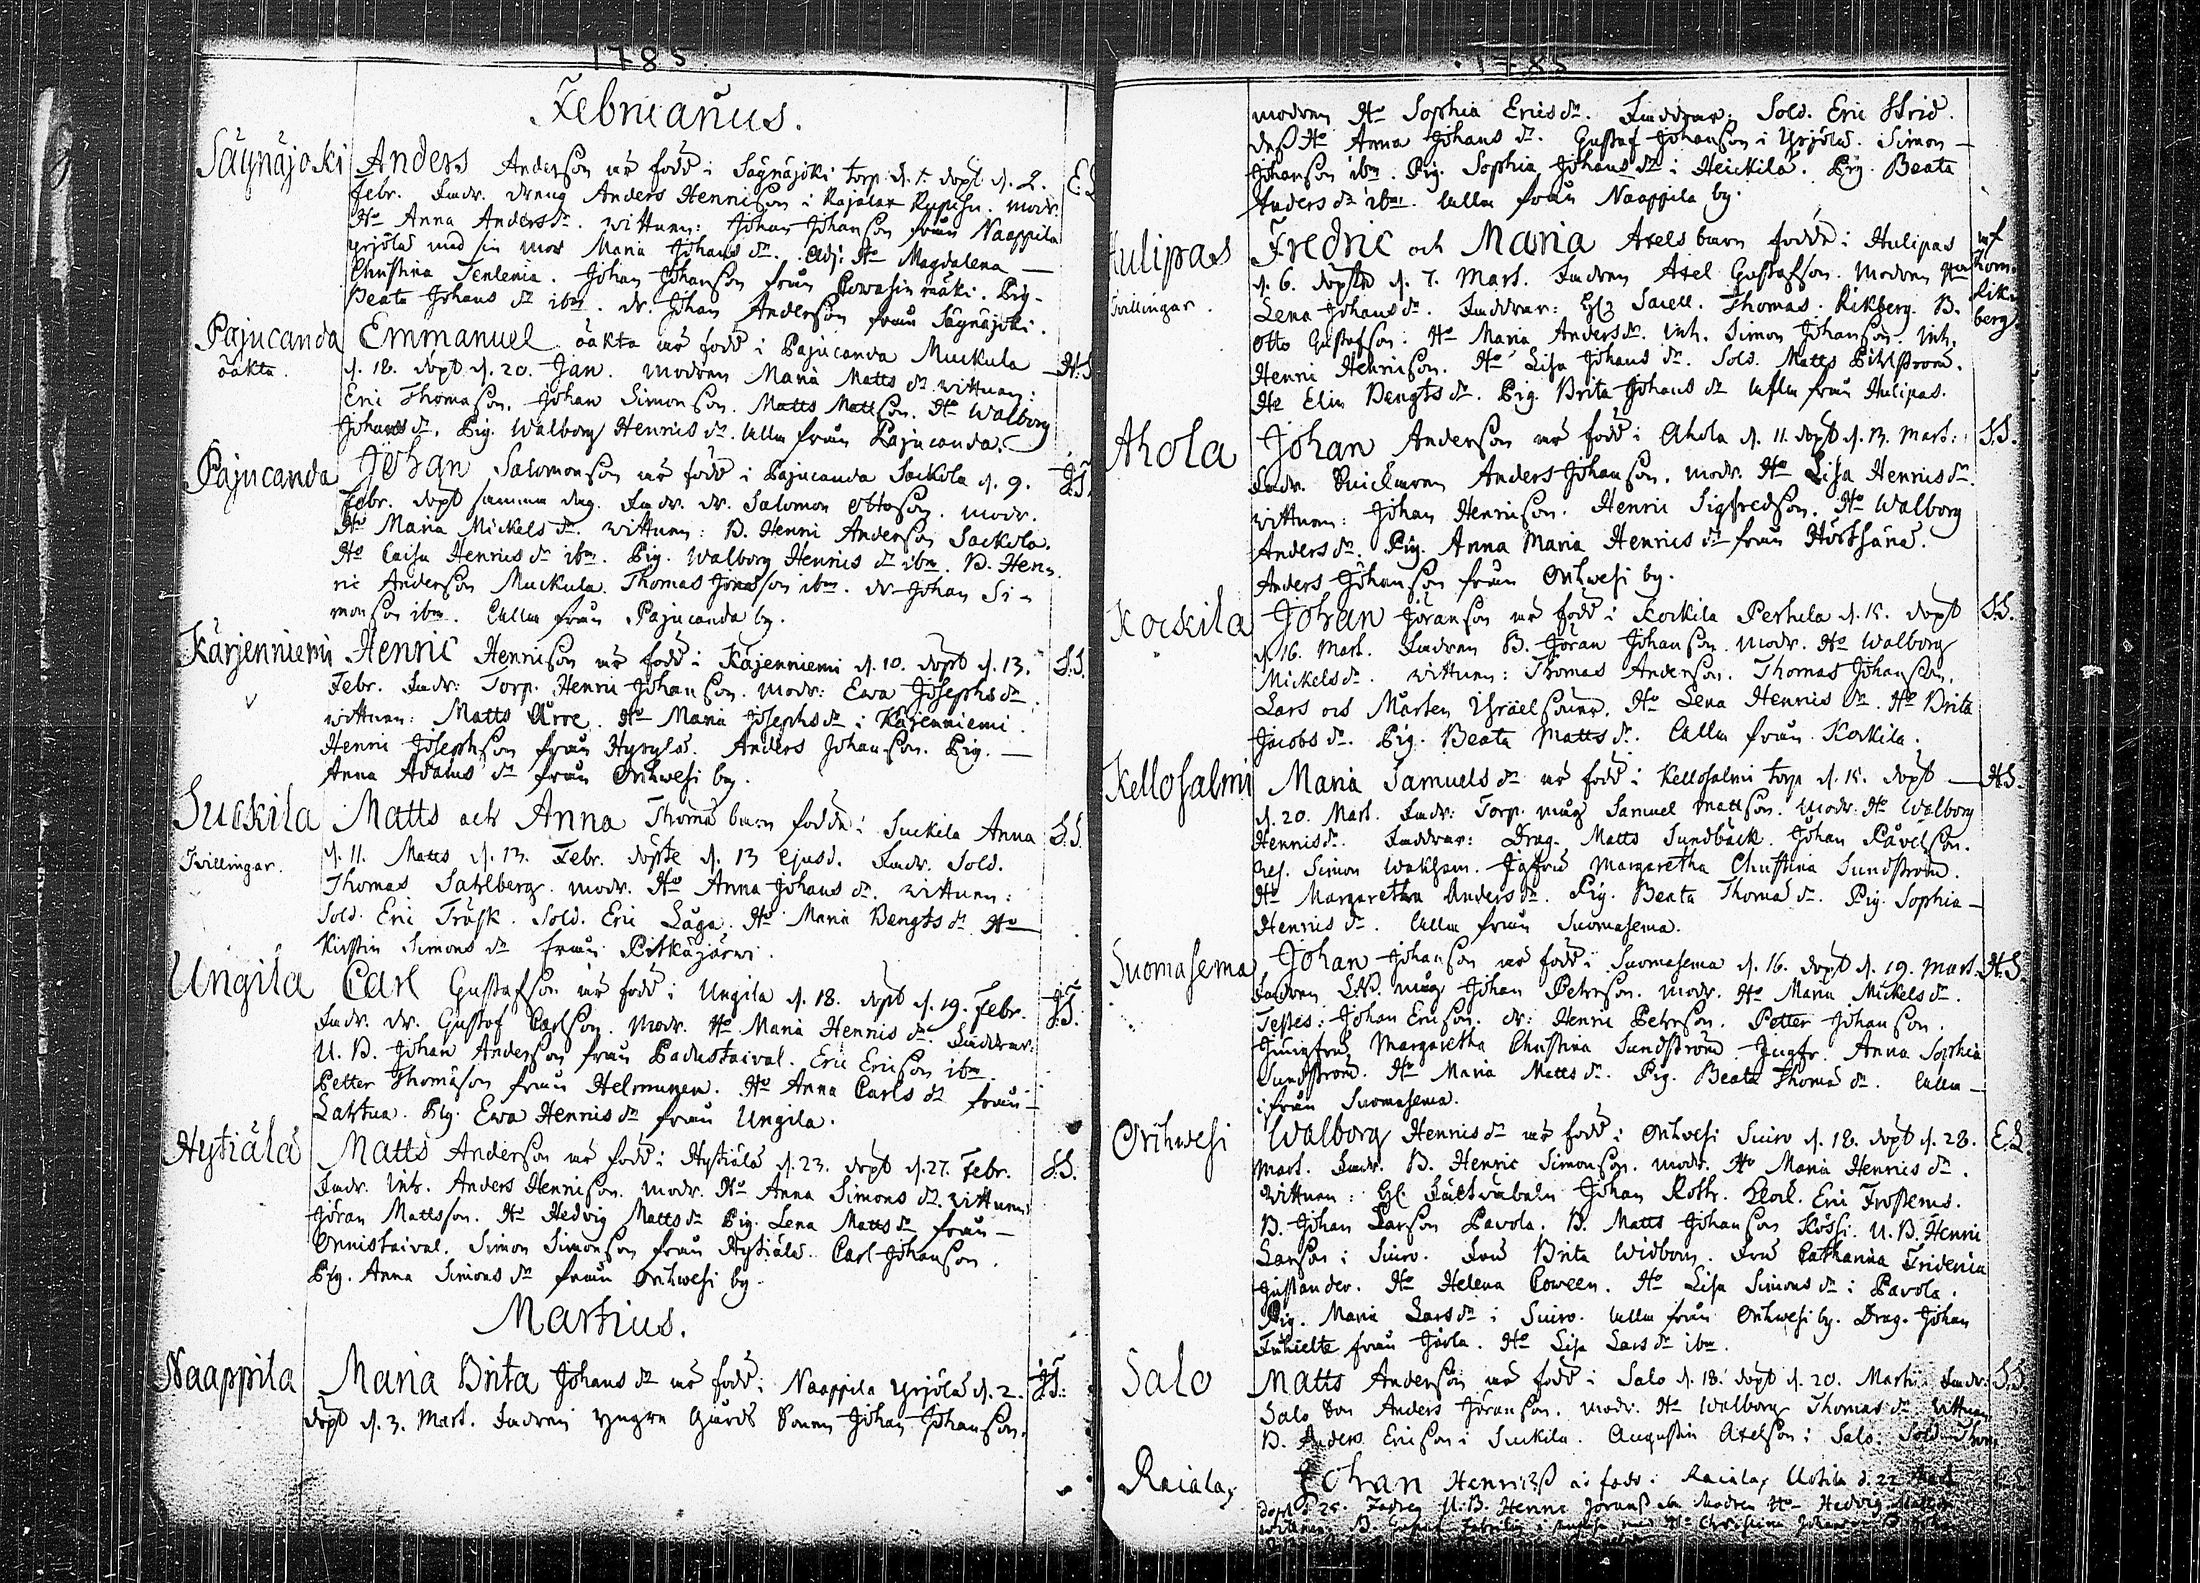 1785.
Februarius.
Säynäjoki Anders Anderson är född i Säynäjöki torp d. 1. döpt d. 2.
Febr. Fadr. dreng Anders Henricson i Rajalax modr.
Ho Anna Andersdr. wittnen: Johan Johanson från Naappila
Yrjölä med sin mor Maria Johansdr. Adj: Ho Magdalena —
Christina Tenlenia. Johan Johanson från Powasinmäki. Pig.
Beata Johansdr ibm. dr. Johan Anderson från Säynäjöki.
Pajucanda Emmanuel oäkta är född i Pajucanda Muckula H.S.
oäkta. d. 18. döpt d. 20. Jan. modren Maria Mattsdr wittnen:
Eric Thomason. Johan Simonson. Matts Mattson. Ho Walborg
Johansdr. Pig. Walborg Henricsdr. Alla från Pajucanda.
Pajucanda Johan Salomonson är född i Pajucanda Sackola d. 9.
Febr. döpt samma dag. Fadr. dr. Salomon Ottoson. modr.
Ho Maria Mickelsdr. wittnen: B. Henric Anderson Sackola.
Ho Caisa Henricsdr ibm. Pig. Walborg Henricsdr ibm. B. Hen-
ric Anderson Muckula. Thomas Jonasson ibm. dr Johan Si-
monson ibm. Alla från Pajucanda by.
Kärjenniemi Henric Henricson är född i Käjenniemi d. 10. döpt d. 13. S.S.
Febr. Fadr: Torp. Henric Johanson. modr: Ewa Josephsdr.
wittnen: Matts Arve. Ho Maria Josephsdr i Käjenniemi.
Henric Josephson från Hyrylä. Anders Johanson. Pig. —
Anna Adamsdr från Orihwesi by.
Suckila Matts och Anna Thomæ barn födde i Suckila Anna S.S.
Tvillingar. d. 11. Matts d. 13. Febr. döpte d. 13 ejusd. Fadr. Sold.
Thomas Sahlberg. modr. Ho Anna Johansdr. wittnen:
Sold. Eric Träsk. Sold. Eric Låga. Ho Maria Bengtsdr Ho
Kirstin Simonsdr från Pitkäjärwi.
Ungila Carl Gustafson är född i Ungila d. 18. döpt d. 19. Febr.
Fadr. dr. Gustof Carlson. Modr. Ho Maria Henricsdr. Faddrar:
U. B. Johan Anderson från Padustaival. Eric Ericson ibm.
Petter Thomason från Helmunen. Ho Anna Carlsdr från —
Lahtua. Pig. Ewa Henricsdr från Ungila.
Hytiälä Matts Anderson är född i Hytiälä d. 23. döpt d. 27. Febr. S.S.
Fadr. Inh. Anders Henricson. modr. Ho Anna Simonsdr. wittnen:
Jöran Mattsson. Ho Hedvig Mattsdr Pig. Lena Mattsdr från —
Onnistaival. Simon Simonson från Hytiälä. Carl Johanson.
Pig. Anna Simonsdr från Orihwesi by.
Martius.
Naappila Maria Brita Johansdr är född i Naappila Yrjölä d. 2.
döpt d. 3. Mart. Fadren yngre Gårds Sonen Johan Johanson.
1785
modren Ho Sophia Ericsdr. Faddrar: Sold. Eric Strid.
dess Ho Anna Johansdr. Gustaf Johanson i Yrjölä. Simon —
Johanson ibm. Pig. Sophia Johansdr i Heickilä. Pig. Beata
Andersdr ibm. Alla från Naappila by.
Hulipas Fredric och Maria Axels barn födde i Hulipas
Tvillingar. d. 6. döpte d. 7. Mart. Fadren Axel Gustafson. Modren Ho
Lena Johansdr. Faddrar: Thomas Rikberg. B.
Otto Gustafson. Ho Maria Andersdr. Inh. Simon Johanson. Inh.
Henric Henricson. Ho Lisa Johansdr. Sold. Matts Pihlström.
Ho Elin Bengtsdr. Pig. Brita Johansdr Alla från Hulipas.
Ahola Johan Anderson är född i Ahola d. 11. döpt d. 13. Mart: S.S.
Fadr. Anders Johanson. modr. Ho Lisa Henricsdr.
wittnen: Johan Henricson. Henric Sigfredson. Ho Walborg
Andersdr. Pig. Anna Maria Henricsdr från Hörtsänä.
Anders Johanson från Orihwesi by.
Kockila Johan Jöranson är född i Kockila Perhela d. 15. döpt S.S.
d. 16. Mart. Fadren B. Jöran Johanson. modr. Ho Walborg
Mickelsdr. wittnen: Thomas Anderson. Thomas Johanson.
Lars och Mårten Israelsöner. Ho Lena Henricsdr. Ho Brita
Jacobsdr. Pig. Beata Mattsdr. Alla från Kockila.
Kellosalmi Maria Samuelsdr är född i Kellosalmi torp d. 15. döpt — H.S.
d. 20. Mart. Fadr: Torp. måg Samuel Mattson. Modr. Ho Walborg
Henricsdr. Faddrar: Drag. Matts Sundbäck. Johan Påvelson.
res. Simon Jgfru Margaretha Christina Sundström.
Ho Margaretha Andersdr. Pig. Beata Thomædr. Pig. Sophia —
Henricsdr. Alla från Suomasema.
Suomasema Johan Johanson är född i Suomasema d. 16. döpt d. 19. Mart. H.S.
Fadren måg Johan Petrson. modr. Ho Maria Mickelsdr.
Testes: Johan Ericson. dr: Henric Petrson. Petter Johanson.
Jungfru Margaretha Christina Sundström. Jugfr. Anna Sophia
Sundström. Ho Maria Mattsdr. Pig. Beata Thomædr. Alla —
ifrån Suomasema.
Orihwesi Walborg Henricsdr är född i Orihwesi Suiro d. 18. döpt d. 28. E.L.
Mart. Fadr. B. Henric Simonson. modr. Ho Maria Henricsdr.
wittnen: Johan Roth. Klock. Eric Frosterus.
B. Johan Larson Pavola. B. Matts Johanson Kössi. U. B. Henric
Larson i Suiro. Fru Brita Widbom. Fru Catharina Fridenia
Gustander. Ho Helena Coween. Ho Lisa Simonsdr i Pavola.
Pig. Maria Larsdr i Suiro. Alla från Orihwesi by. Drag. Johan
från Järla. Ho Lisa Larsdr ibm.
Salo Matts Anderson är född i Salo d. 18. döpt d. 20. Martii. Fadr: S.S.
Salo Son Anders Jöranson. modr. Ho Walborg Thomasdr. Wittnen
B. Anders Ericson i Suckila. Augustin Axelson i Salo. Sold.
Raiala Johan född i Raiala Uotila d. 22
döpt d. 25. Fadren U. B. Henric Modren Ho Hedvig
Christina